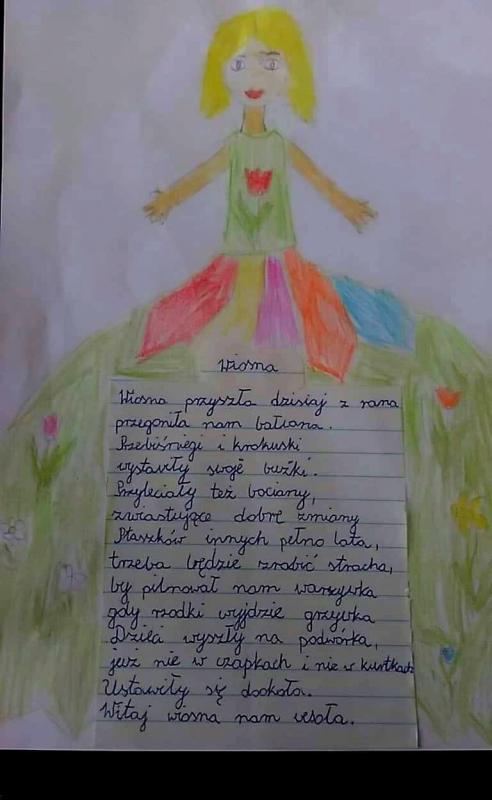 Wiosna
Wiosna przyszła dzisiaj z rana
przegoniła nam bałwana.
Przebiśniegi i krokuski
wystawiły swoje buźki.
Przyleciały też bociany,
zwiastujące dobre zmiany
Ptaszków innych pełno lata,
trzeba będzie zrobić stracha,
by pilnował nam warzywka
gdy rzodki wyjdzie grzywka
Dzieci wyszły na podwórka,
już nie w czapkach i nie w kurtkach
Ustawiły się dookoła.
Witaj wiosna nam wesoła.